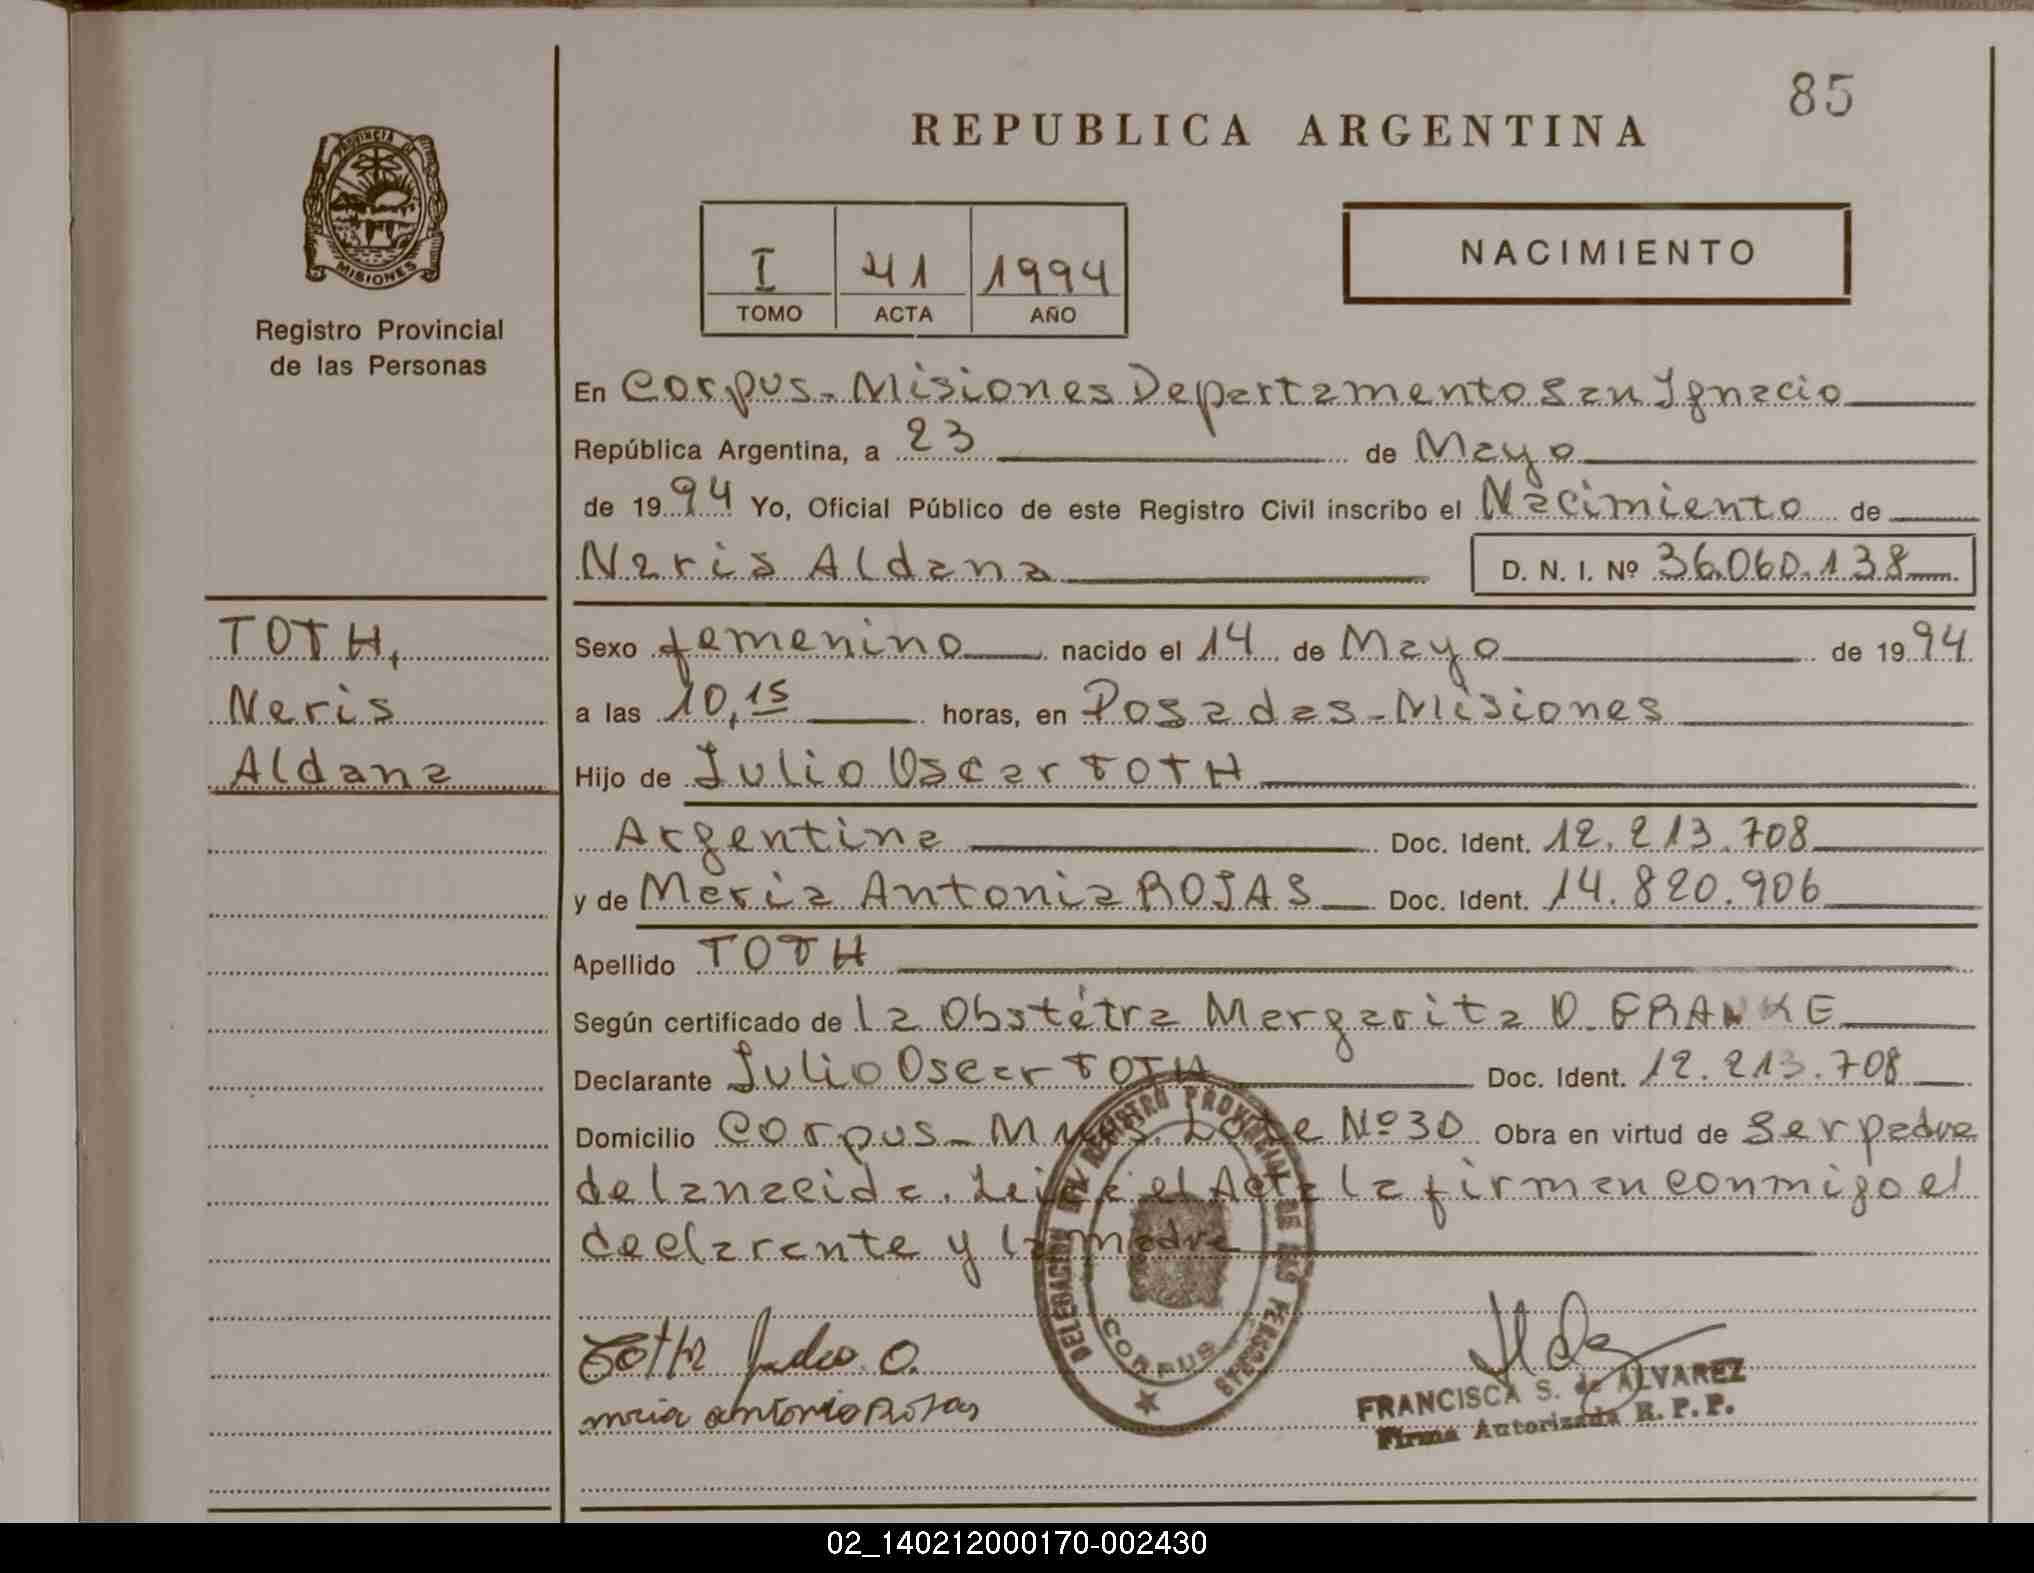 85
REPUBLICA ARGENTINA
PROVINCIA DE
MISIONES
Registro Provincial
de las Personas
I 41 1994
TOMO ACTA AÑO
NACIMIENTO
En Corpus - Misiones Departamento San Ignacio
República Argentina, a 23 de Mayo
de 1994 Yo, Oficial Público de este Registro Civil inscribo el Nacimiento de
Neris Aldana D. N. I. Nº 36.060.138
TOTH,
Neris
Aldana
Sexo femenino nacido el 14 de Mayo de 1994
a las 10,15 horas, en Posadas - Misiones
Hijo de Julio Oscar TOTH
Argentina Doc. Ident. 12.213.708
y de Maria Antonia ROJAS Doc. Ident. 14.820.906
Apellido TOTH
Según certificado de la Obstétra Margarita O. FRANKE
Declarante Julio Oscar TOTH Doc. Ident. 12.213.708
Domicilio Corpus - Mnes. Lote Nº 30 Obra en virtud de Ser padre
de la nacida. Leida el Acta la firman conmigo el
declarante y la madre
DELEGACION REGISTRO PROVINCIAL DE LAS PERSONAS
CORPUS
Toth Julio O.
maria antonia Rojas
FRANCISCA S. de ALVAREZ
Firma Autorizada R. P. P.
02_140212000170-002430